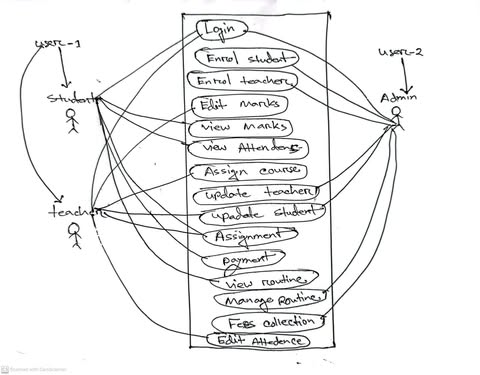 user-1
Student
teacher
Login
Enrol student
Enrol teacher
Edit Marks
view Marks
view Attendens
Assign course
update teacher
upadate student
Assignment
payment
view routine
Manage Routine
Fees collection
Edit Attedence
user-2
Admin
Scanned with CamScanner